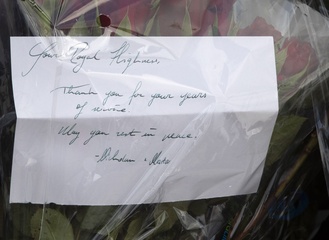 Your Royal Highness,
Thank you for your years
of service.
May you rest in peace.